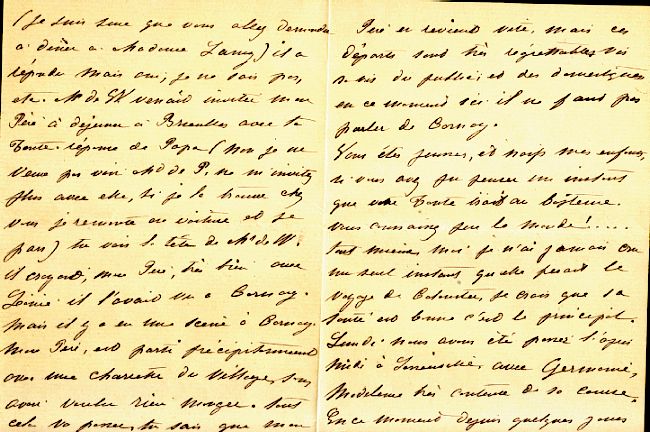 (Je suis sure que vous allez demander
à diner à Madame Lamy) il a
répondu mais oui, je ne sais pas,
etc. Mr de W venait inviter mon
Père à déjeuner à Bruxelles avec ta
Tante. réponse de Papa (Non je ne
veux pas voir Md de P. ne m'invitez
plus avec elle, si je la trouve chez
vous je remonte en voiture et je
pars) tu vois la tête de Mr de W.
il croyait, mon Père, très bien avec
il l'avait vu à Cornay.
Mais il y a eu une scène à Cornay.
Mon Père, est parti précipitamment
avec une charrette du Village, sans
avoir voulu rien manger. tout
cela va passer, tu sais que mon
Père en revient vite, mais ces
départs sont très regrettables vis
à vis du public, et des domestiques
en ce moment ici il ne faut pas
parler de Cornay.
Vous êtes jeunes, et naïfs mes enfants,
si vous avez pu penser un instant
que votre Tante irait au
Vous connaissez peu le monde! ....
tout mieux, moi je n'ai jamais cru
un seul instant qu'elle ferait le
voyage de je crois que sa
santé est bonne c'est le principal.
Lundi nous avons été passer l'après
midi à avec Germaine,
Madeleine très contente de sa course.
En ce moment depuis quelques jours